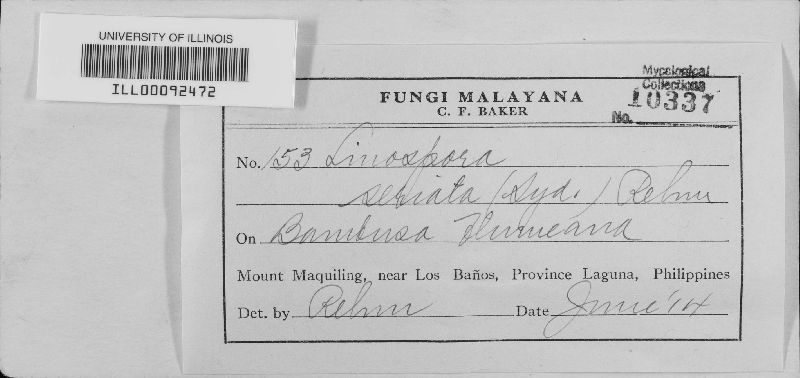 UNIVERSITY OF ILLINOIS
ILL00092472
Mycological
Collections
No. 10337
FUNGI MALAYANA
C. F. BAKER
No. 153 Linospora
seriata (Syd.) Rehm
On Bambusa Blumeana
Mount Maquiling, near Los Baños, Province Laguna, Philippines
Det. by Rehm Date June '14